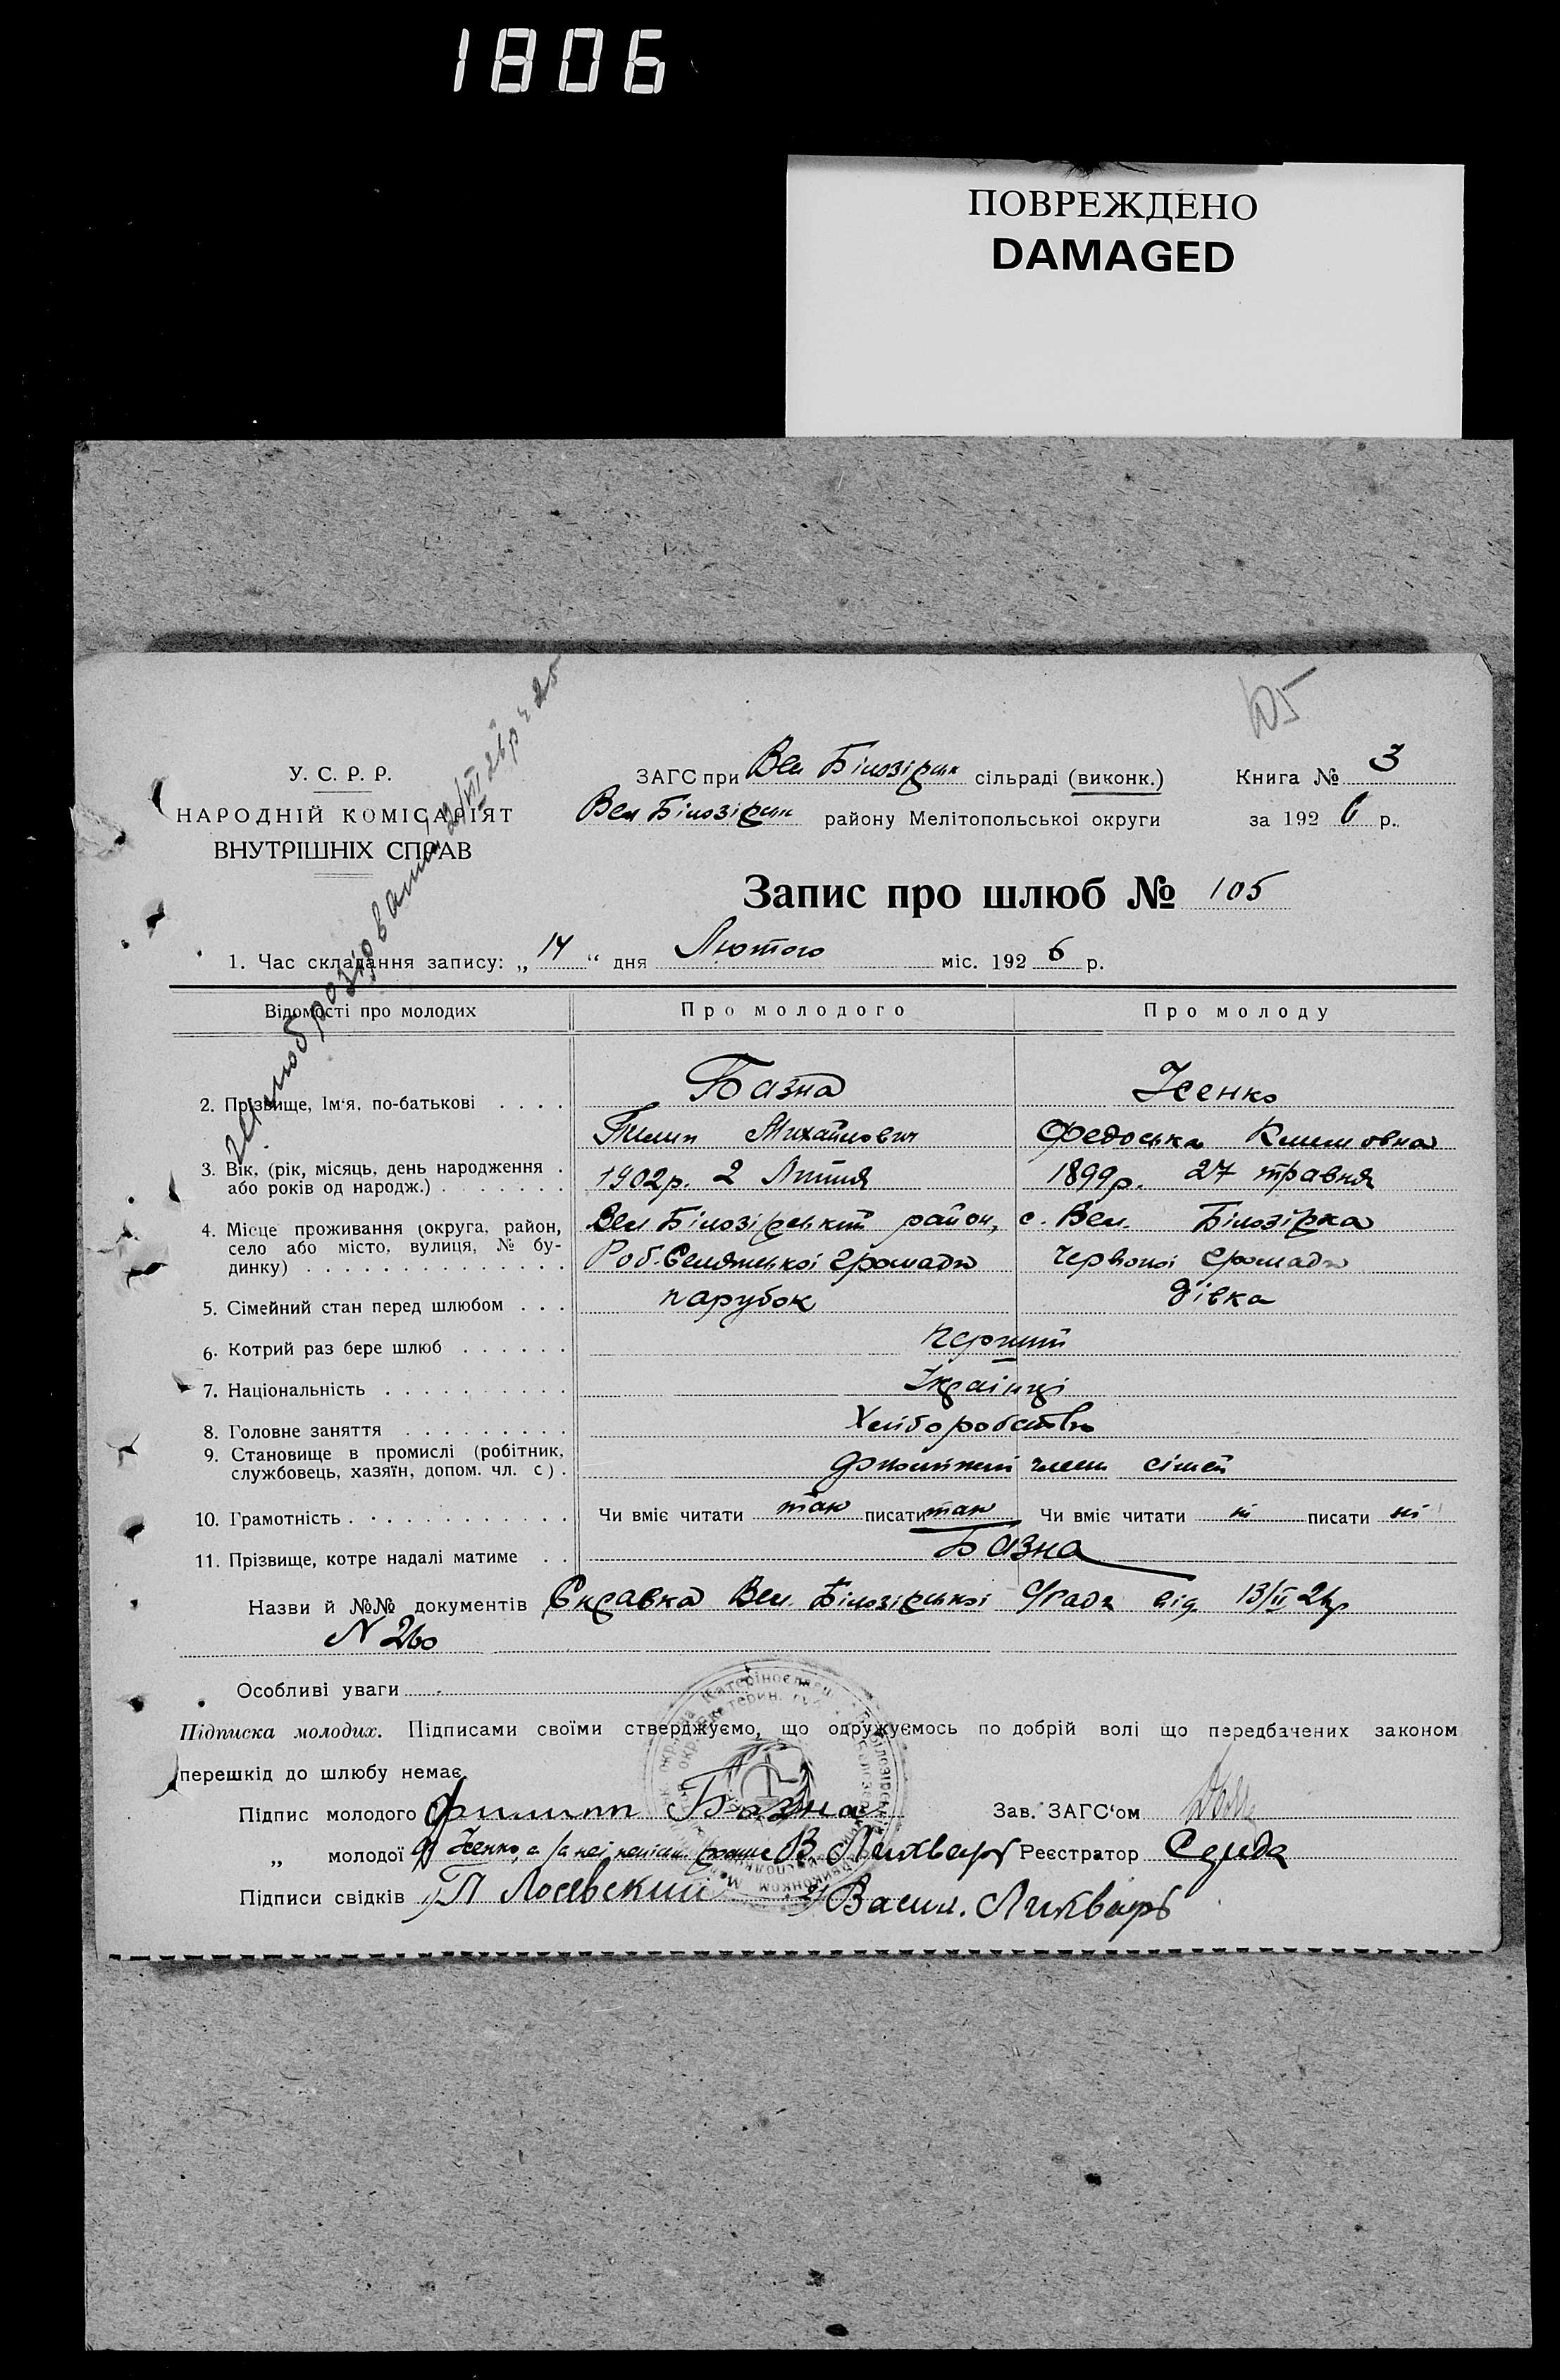 1806
ПОВРЕЖДЕНО
DAMAGED
105
У. С. Р. Р.
НАРОДНІЙ КОМІСАРІЯТ
ВНУТРІШНІХ СПРАВ
ЗАГС при Вел Білозірськ сільраді (виконк.) Книга № 3
Вел Білозірськ району Мелітопольської округи за 192 6 р.
Запис про шлюб № 105
1. Час складання запису: „ 14 “ дня Лютого міс. 192 6 р.
Відомості про молодих Про молодого Про молоду
2. Прізвище, Ім'я, по-батькові . . . . Базна Ісенко
Пилип Михайлович Федоська Климовна
3. Вік, (рік, місяць, день народження .
або років од народж.) . . . . . . . 1902 р. 2 Липня 1899 р. 27 травня
4. Місце проживання (округа, район, Вел. Білозірський район, с. Вел. Білозірка
село або місто, вулиця, № бу-
динку) . . . . . . . . . . . . . . Роб. Селянської громади Червоної громади
5. Сімейний стан перед шлюбом . . . парубок дівка
6. Котрий раз бере шлюб . . . . . . перший
7. Національність . . . . . . . . . . Українці
8. Головне заняття . . . . . . . . . Хліборобство
9. Становище в промислі (робітник,
службовець, хазяїн, допом. чл. с) . допоміжні члени сімей
10. Грамотність . . . . . . . . . . . . Чи вміє читати так писати так Чи вміє читати ні писати ні
11. Прізвище, котре надалі матиме . . Базна
Назви й №№ документів Справка Вел. Білозірської с/ради від 13/II 26р
N 260
Особливі уваги
Підписка молодих. Підписами своїми стверджуємо, що одружуємось по добрій волі що передбачених законом
перешкід до шлюбу немає.
Підпис молодого Филипп Базна Зав. ЗАГС'ом
„ молодої Ісенко, а за неї В. Лихварь Реєстратор Середа
Підписи свідків 1) П Лосевский 2) Васил. Лихварь